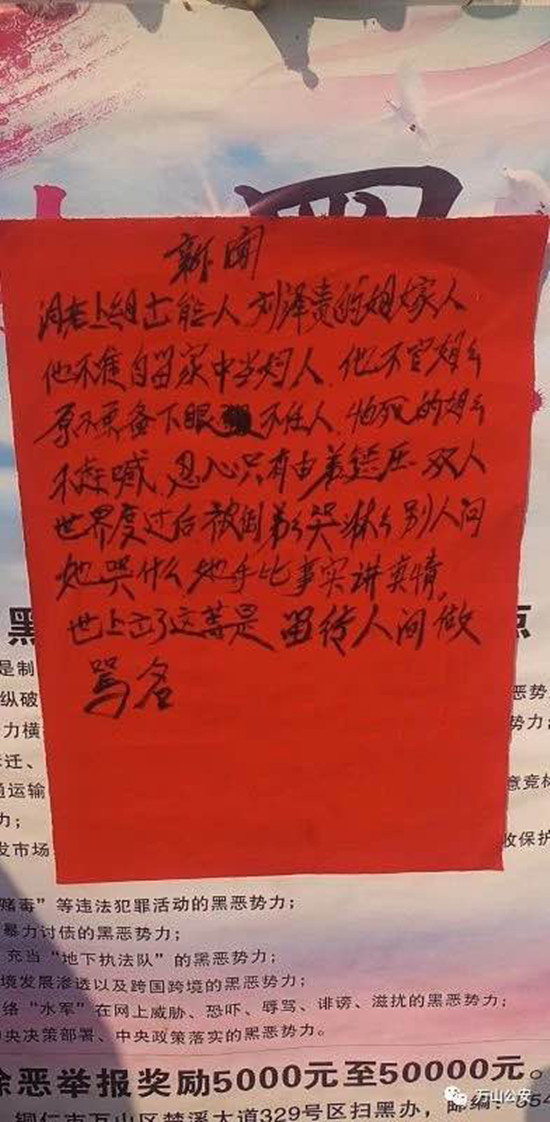 黑
新闻
冲老上组出能人 刘泽贵的姐嫁人
他不售自留家中当妇人 他不官姐么
原不原备下眼 不任人 怕死的姐么
不赶喊 忍心只有由着 压 双人
世界度过后被倒弟么哭淋么别人问
她哭什么她手比事实讲真情
世上出了这等是 留待人间做
骂名
黑 点
是制 恶势
纵破 势力;
力横
迁、
通运输 意竞标
力;
发市场 收保护
赌毒”等违法犯罪活动的黑恶势力;
暴力讨债的黑恶势力;
充当“地下执法队”的黑恶势力;
境发展渗透以及跨国跨境的黑恶势力;
络“水军”在网上威胁、恐吓、辱骂、诽谤、滋扰的黑恶势力;
中央决策部署、中央政策落实的黑恶势力。
除恶举报奖励5000元至50000元。
铜仁市万山区楚溪大道329号区扫黑办, 邮编: 554
万山公安